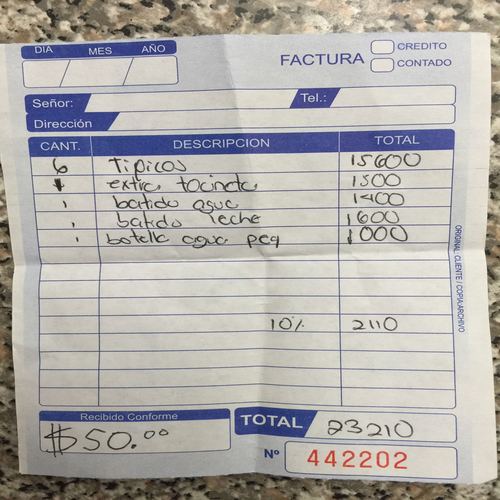 DIA MES AÑO
FACTURA
CREDITO
CONTADO
Señor: Tel.:
Dirección
CANT. DESCRIPCION TOTAL
6 Tipicos 15600
1 extra tocineta 1500
1 batido agua 1400
1 batido leche 1600
1 botella agua peq 1000
10% 2110
ORIGINAL: CLIENTE / COPIA:ARCHIVO
Recibido Conforme
$50.00
TOTAL 23210
Nº 442202